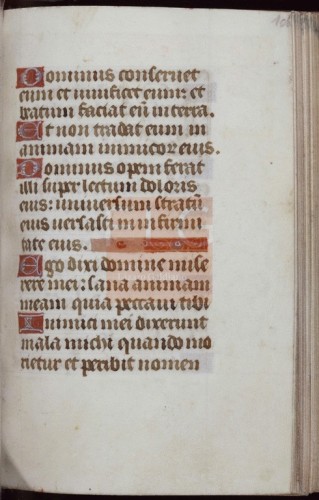 Dominus conseruet
eum et uiuificet eum: et
beatum faciat eū in terra.
Et non tradat eum in
animam inimicor eius.
Dominus opem ferat
illi super lectum doloris
eius: uniuersum stratū
eius uersasti in infirmi
tate eius.
Ego dixi domine mise
rere mei: sana animam
meam quia peccaui tibi
Inimici mei dixerunt
mala michi quando mo
rietur et peribit nomen